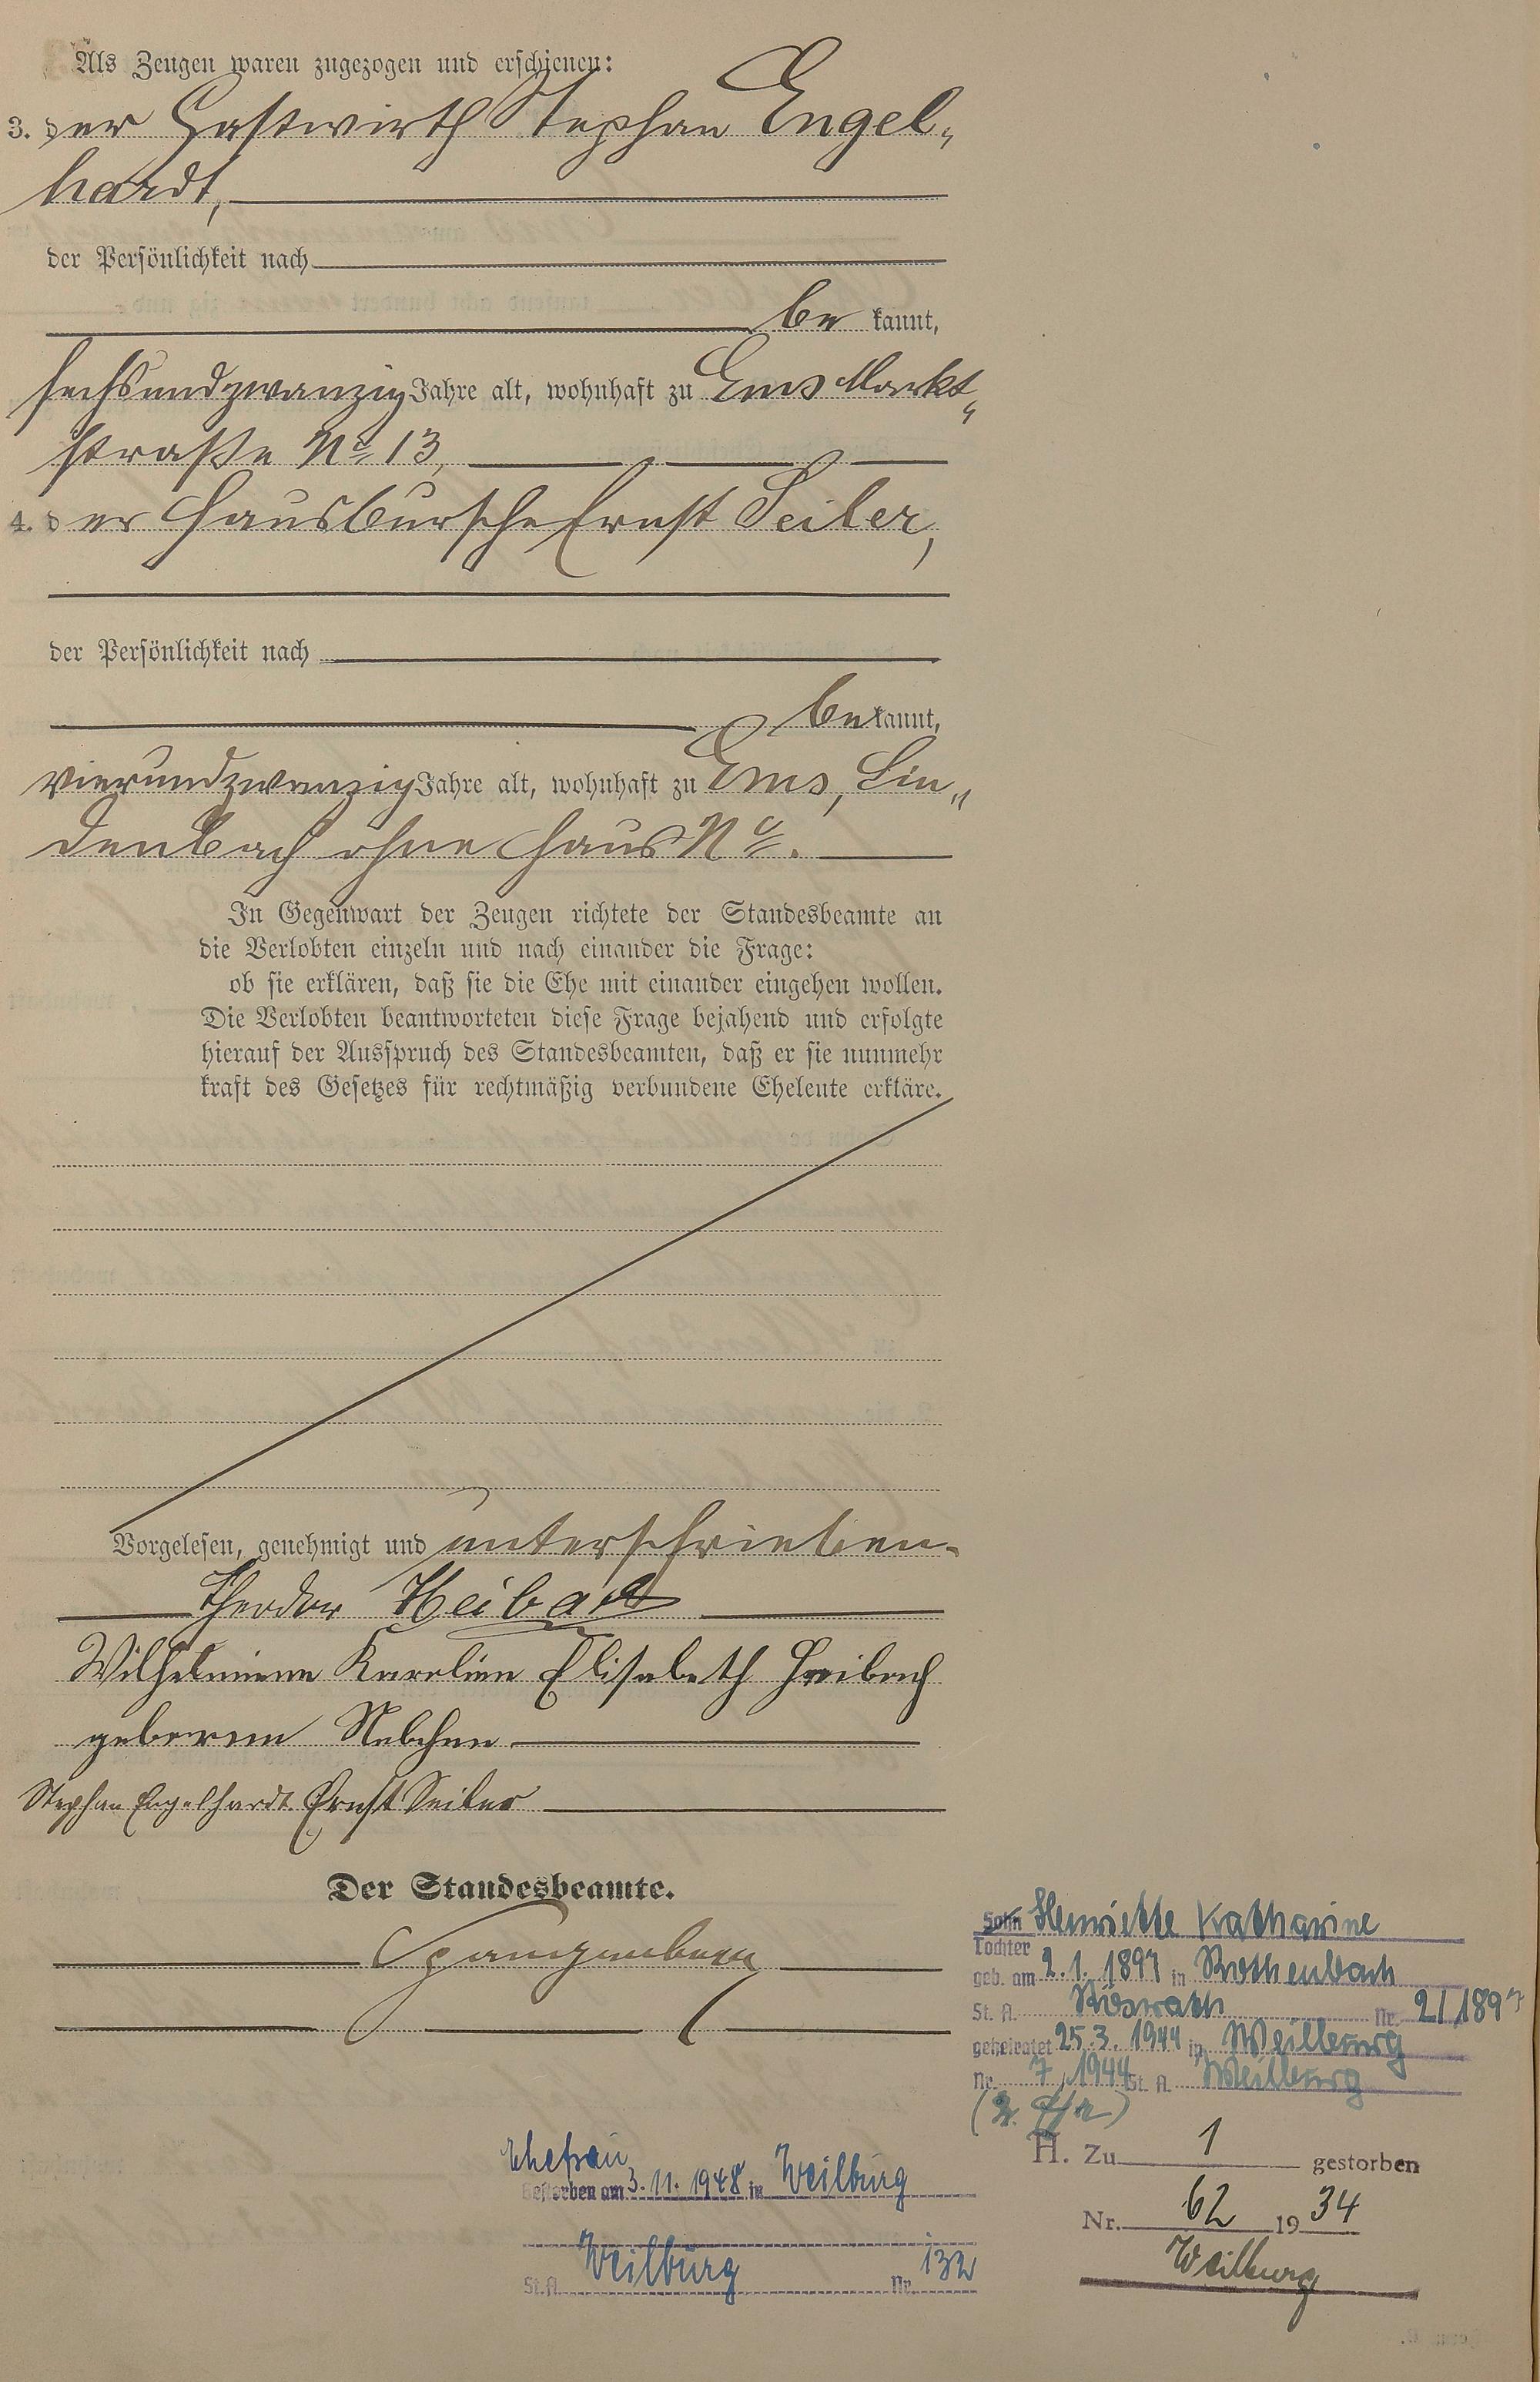 Als Zeugen waren zugezogen und erschienen:
3. der Gastwirth Stephan Engel„
hardt,
der Persönlichkeit nach
be kannt,
sechsundzwanzig Jahre alt, wohnhaft zu Ems Markt„
straße No 13,
4. der Hausbursche Ernst Seiler,
der Persönlichkeit nach
be kannt,
vierundzwanzig Jahre alt, wohnhaft zu Ems, Lin„
denbach ohne Haus No.
In Gegenwart der Zeugen richtete der Standesbeamte an
die Verlobten einzeln und nach einander die Frage:
ob sie erklären, daß sie die Ehe mit einander eingehen wollen.
Die Verlobten beantworteten diese Frage bejahend und erfolgte
hierauf der Ausspruch des Standesbeamten, daß er sie nunmehr
kraft des Gesetzes für rechtmäßig verbundene Eheleute erkläre.
Vorgelesen, genehmigt und unterschrieben.
Theodor Heibach
Wilhelmine Karoline Elisabeth Heibach
geborene
Stephan Engelhardt Ernst Seiler
Der Standesbeamte.
Spangenberg
Sohn Henriette Katharine
Tochter
geb. am 2.1.1897 in Rothenbach
St. A. Rösrath Nr. 2/1897
geheiratet 25.3.1944 in Weilburg
Nr. 7, 1944 St. A. Weilburg
H. Zu 1 gestorben
Nr. 62 1934
Weilburg
Ehefrau
Gestorben am 3.11.1948 in Weilburg
St. A. Weilburg Nr. 132